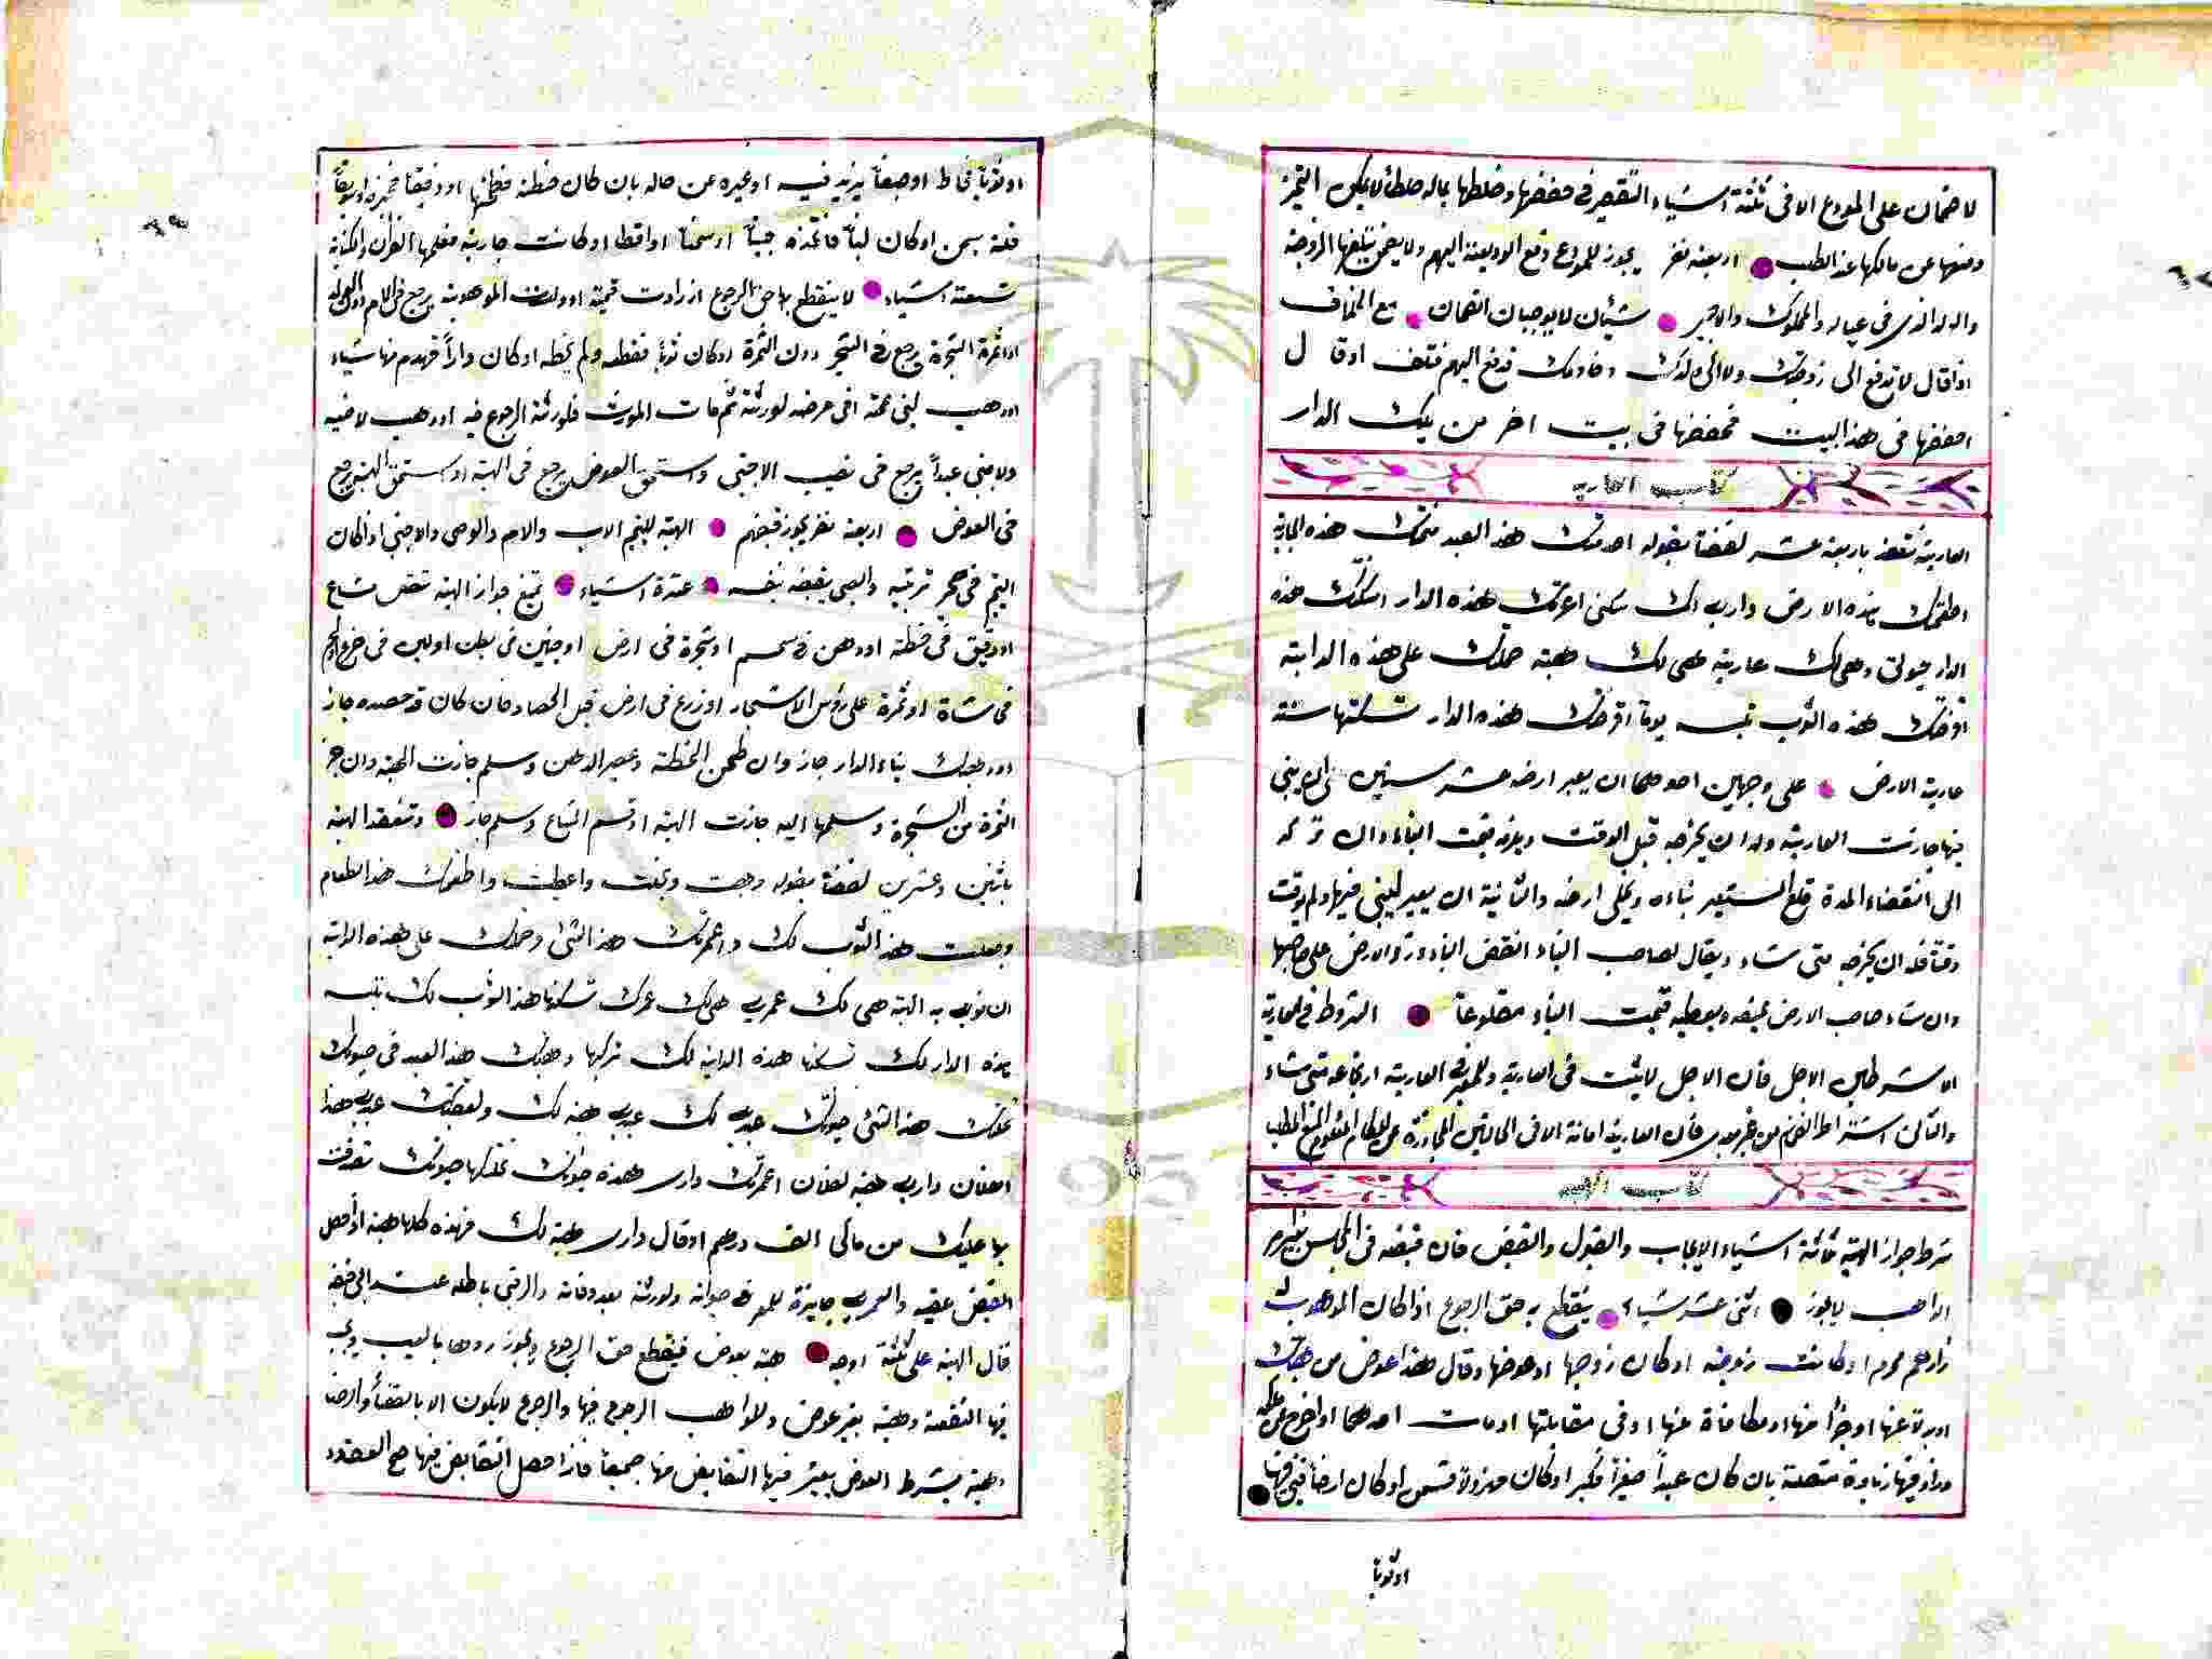 لا ضمان على المودع الا فى ثلثة اشياء التقصير فى حفضها وخلطها بماله خلطاً لا يمكن التميز
ومنعها عن مالكها عند الطلب اربعة نفر يجوز للمودع دفع الوديعة اليهم ولا يضمن بتلفها الزوجة
والولد الذى فى عياله والمملوك والاجير شيئان لا يوجبان الضمان مع الخلاف
اذا قال لا تدفع الى زوجتك ولا الى ولدك وخادمك فدفع اليهم فتلف او قال
احفضها فى هذا البيت فحفضها فى بيت اخر من تلك الدار
كتاب العارية
العارية تنعقد باربعة عشر لفضاً بقوله اخدمتك هذا العبد منحتك هذه الجارية
اطعمتك هذه الارض دارى لك سكنى اعرتك هذه الدار اسكنتك هذه
الدار حيوتى وهى لك عارية هى لك هبة حملتك على هذه الدابة
هذه الثوب تلبسه يوماً اقرضتك هذه الدار تسكنها سنة
عارية الارض على وجهين احدهما ان يعير ارضه عشر سنين على ان يبنى
فيها جازت العارية وله ان يخرجه قبل الوقت ويلزمه قيمت البناء وان تركه
الى انقضاء المدة قلع المستعير بناءه ويخلى ارضه والثانية ان يعير ليبنى فيها ولم يوقت
وقتاً فله ان يخرجه متى شاء ويقال لصاحب البناء انقض البناء ورد الارض على صاحبها
وان شاء صاحب الارض يمنعه ويعطيه قيمت البناء مقلوعاً الشروط فى العارية
الا شرطين الاجل فان الاجل لا يثبت فى العارية وللمعير فى العارية ارتجاعه متى شاء
والثانى اشتراط الضمان من غير تعدى فان العارية امانة الا فى الحالتين المجاوزة عن المكان
كتاب الهبه
شرط جواز الهبة ثلثة اشياء الايجاب والقبول والقبض فان قبضه فى المجلس بغير امر
الواهب لا يجوز اثنى عشر شياء ينقطع به حق الرجوع اذا كان الموهوب له
ذا رحم محرم او كانت زوجته او كان زوجها او عوضها وقال هذا عوض من هبتك
او بدلا عنها او جزاً منها او مكافاة عنها او فى مقابلتها او مات احدهما او اخرج عن ملكه
وزاد فيها زيادة متصلة بان كان عبداً صغيراً فكبر او كان مهزولاً فسمن او كان ارضاً فبنى فيها
او ثوباً
او ثوباً فخاط او صبغاً يزيد فيه او غيره عن حاله بان كان حنطة فطحنها او دقيقاً فخبزه او سويقاً
فلته بسمن او كان لبناً فاتخذه جبناً او سمناً او اقطا او كانت جارية فعلمها القرآن والكتابة
تسعة اشياء لا ينقطع بها حق الرجوع اذ زادت قيمته او ولدت الموهوبة يرجع فى الام دون الولد
او اثمرة الشجرة يرجع فى الشجر دون الثمرة او كان ثوباً فقطعه ولم يخطه او كان داراً فهدم منها شياء
او وهب لبنى عمه او فى مرضه لورثته ثم مات المورث فلورثته الرجوع فيه او وهب لاخيه
ولاجنبى عبداً يرجع فى نصيب الاجنبى واستحق العوض يرجع فى الهبة او استحق الهبة يرجع
فى العوض اربعة نفر يجوز قبضهم الهبة لليتيم الاب والام والوصى والاجنبى اذا كان
اليتيم فى حجر تربيته والصبى يقبضه بنفسه عشرة اشياء تمنع جواز الهبة شقص مشاع
او دقيق فى حنطة او دهن فى سمسم او شجرة فى ارض او جنين فى بطن او لبن فى ضرع او لحم
فى شاة او ثمرة على رؤس الاشجار او زرع فى ارض قبل الحصاد فان كان قد حصده جاز
بناء الدار جاز وان طحن الحنطة وعصر الدهن وسلم جازت الهبة وان جز
الثمرة من الشجرة وسلمها اليه جازت الهبة او قسم المشاع وسلم جاز وتنعقد الهبة
باثنين وعشرين لفضاً بقوله وهبت ونحلت واعطيت واطعمتك هذا الطعام
وجعلت هذا الثوب لك واعمرتك هذا الشئ وحملتك على هذه الدابة
ان نوى به الهبة هى لك عمرى هى لك عمرك تسكنها هذا الثوب لك تلبسه
هذه الدار لك تسكنها هذه الدابة لك تركبها وهبتك هذا العبد فى حيوتك
نحلتك هذا الشئ حيوتك عبدى لك عبدى هبة لك عبدى هذا
لفلان دارى هبة لفلان اعمرتك دارى هذه حيوتك تملكها حيوتك تصرفت
بها عليك من مالى الف درهم او قال دارى هبة لك فهذه كلها هبة اذا حصل
القبض عقيبه والعمرى جايزة للمعمر فى حيواته ولورثته بعد وفاته والرقبى باطلة عند ابى حنيفه
قال الهبة على ثلثة اوجه هبة بعوض فينقطع حق الرجوع ويجوز ردها بالعيب ويجب
فيها الشفعة وهبة بغير عوض وللواهب الرجوع فيها والرجوع لا يكون الا بالقضاء والرضا
وهبة بشرط العوض يعتبر فيها التقابض منها جميعاً فاذا حصل التقابض فيها صح العقد